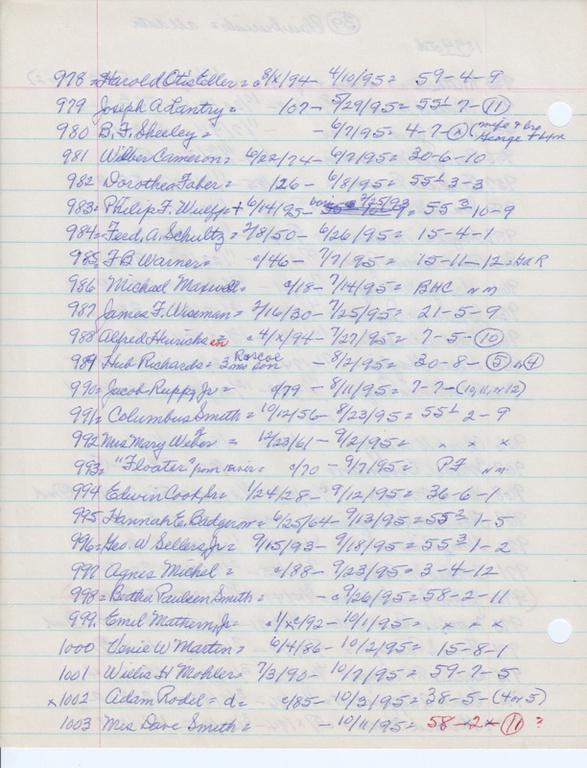 978 = Harold Otis Eller = c 8/x/94 - 4/10/95 = 59-4-9
979 Joseph A. Lantry = 107 - 5/29/95 = 55½ 7-(11)
980 B. F. Sheeley = - 6/7/95 = 4-7-(x) (wife &
981 Wilber Cameron = 6/22/74 - 6/7/95 = 30-6-10
982 Dorothea Faber = 126 - 6/8/95 = 55½ 3-3
983 = Philip F. Wuepp + 6/14/95 - born 2/25/93 = 55³ 10-9
984 = Fred. A. Schultz = 2/8/50 - 6/26/95 = 15-4-1
985 = F B Warner = c/46 - 7/7/95 = 15-11-12 =
986 Michael Maxwell = c/18 - 7/14/95 = BHC NM
987 James F. Wiseman = 2/16/30 - 7/25/95 = 21-5-9
988 Alfred Heinrichsen = c 4/x/94 - 7/27/95 = 7-5-(10)
989 Hub Richards = 3 mo son Roscoe - 8/2/95 = 30-8-(5) or (4)
990 = Jacob Rupp Jr = c/79 - 8/11/95 = 7-7-(10, 11, or 12)
991 = Columbus Smith = 10/12/56 - 8/23/95 = 55½ 2-9
992 Mrs Mary Weber = 12/23/61 - 9/2/95 = x x x
993 = "Floater" from river = c/70 - 9/7/95 = PF NM
994 Edwin Cook Jr = 1/24/28 - 9/12/95 = 36-6-1
995 Hannah E. Badgerow = 6/25/64 - 9/13/95 = 55³ 1-5
996 = Geo. W Sellers Jr = 9/15/93 - 9/18/95 = 55³ 1-2
997 Agnes Michel = c/88 - 9/23/95 = 3-4-12
998 = Bertha Paulsen Smith = - c 9/26/95 = 58-2-11
999 Emil Mathern Jr = 10/1/95 = x x x
1000 Venie W Martin = 6/4/86 - 10/2/95 = 15-8-1
1001 Willis H Mohler = 7/3/90 - 10/7/95 = 59-7-5
x 1002 Adam Rodel = d = c/85 - 10/3/95 = 38-5-(4 or 5)
1003 Mrs Dave Smith = - 10/11/95 = 58-2x-(11) ?